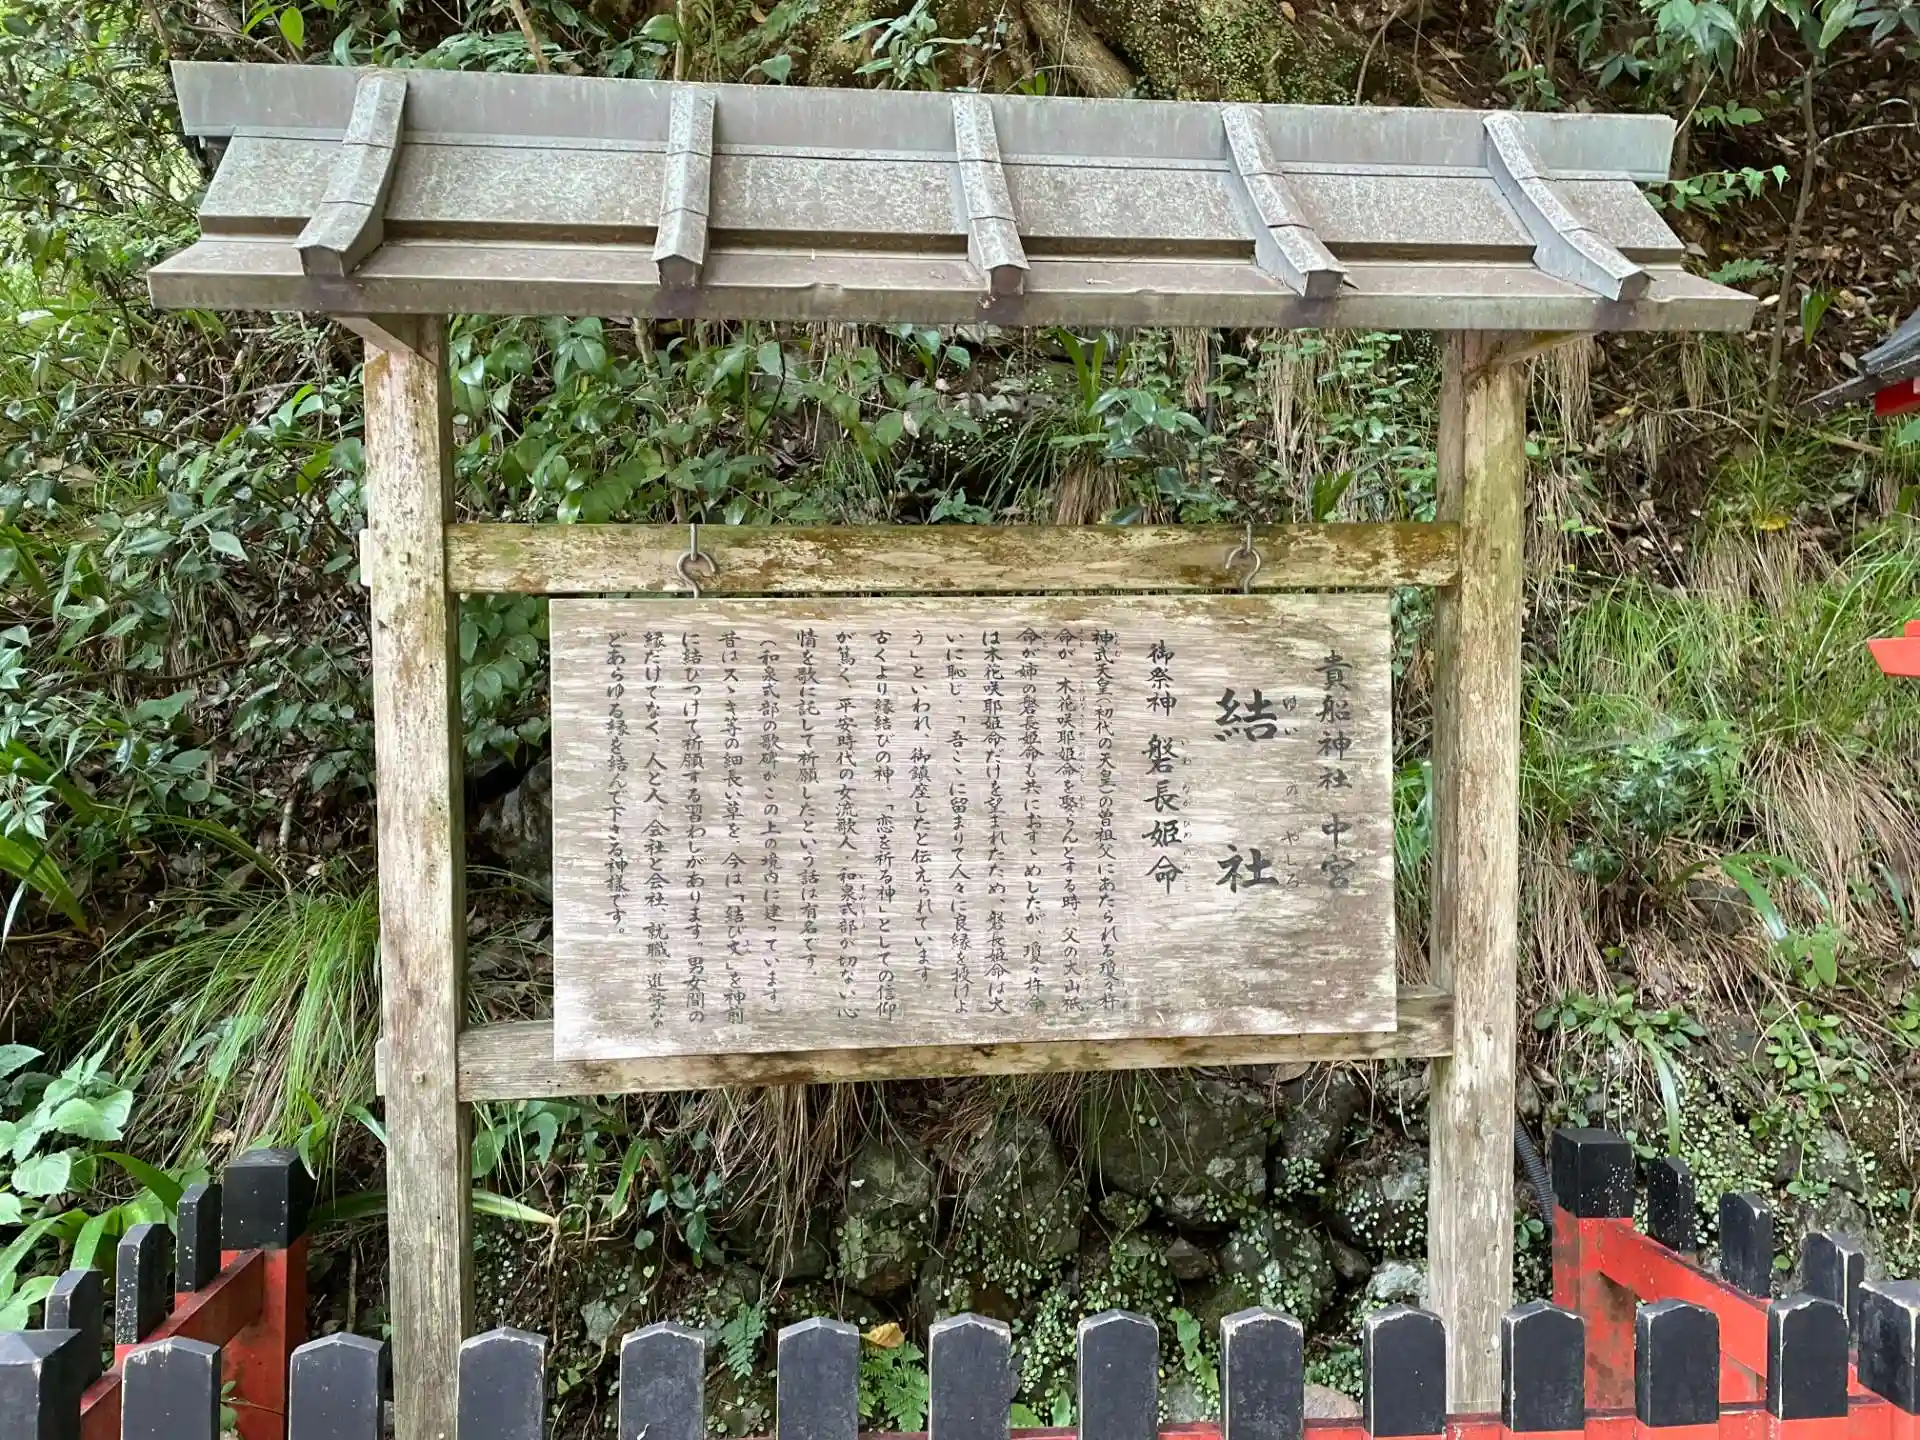 貴船神社 中宮
結社
ゆいのやしろ
御祭神 磐長姫命
いわながひめのみこと
神武天皇(初代の天皇)の曽祖父にあたられる瓊々杵
命が、木花咲耶姫命を娶らんとする時、父の大山祇
命が姉の磐長姫命も共におすゝめしたが、瓊々杵命
は木花咲耶姫命だけを望まれたため、磐長姫命は大
いに恥じ、「吾こゝに留まりて人々に良縁を授けよ
う」といわれ、御鎮座したと伝えられています。
古くより縁結びの神、「恋を祈る神」としての信仰
が篤く、平安時代の女流歌人・和泉式部が切ない心
情を歌に託して祈願したという話は有名です。
(和泉式部の歌碑がこの上の境内に建っています)
昔はスゝキ等の細長い草を、今は「結び文」を神前
に結びつけて祈願する習わしがあります。男女間の
縁だけでなく、人と人、会社と会社、就職、進学な
どあらゆる縁を結んで下さる神様です。